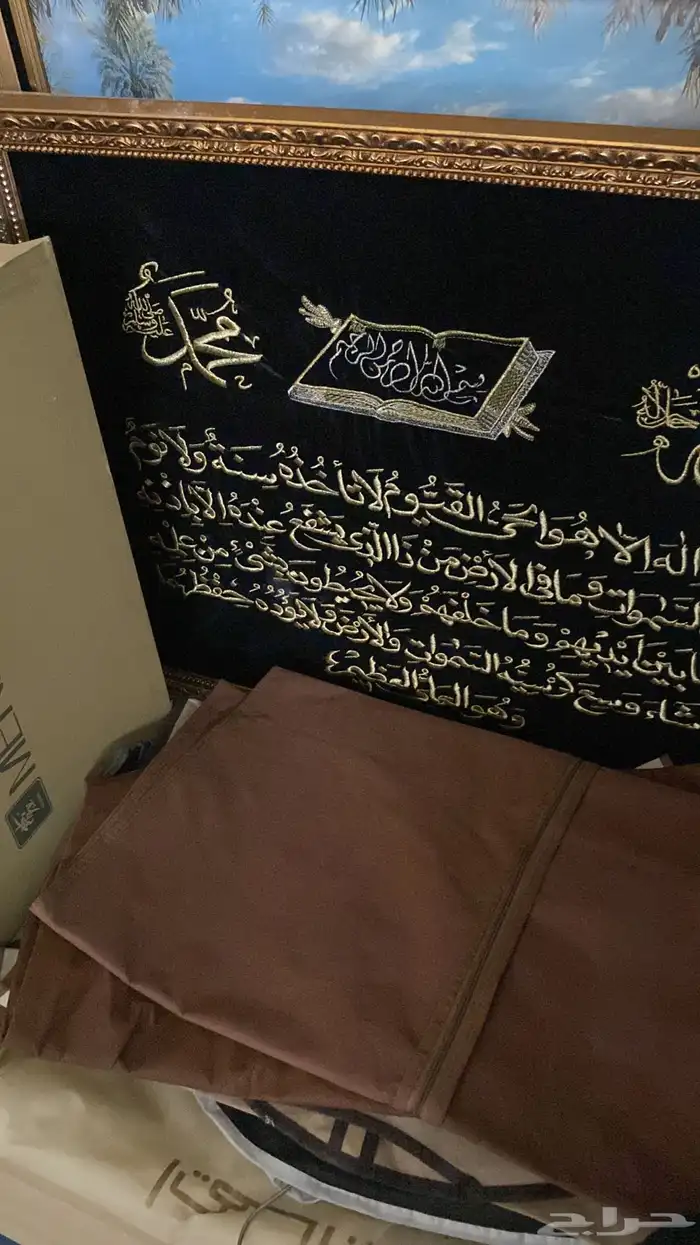 محمد
صلى الله عليه وسلم
بسم الله الرحمن الرحيم
جلاله
اله إلا هو الحي القيوم لا تأخذه سنة ولا نوم
السموات وما في الأرض من ذا الذي يشفع عنده إلا بإذنه
ما بين أيديهم وما خلفهم ولا يحيطون بشيء من علمه
شاء وسع كرسيه السموات والأرض ولا يؤده حفظهما
وهو العلي العظيم
MEN
حراج